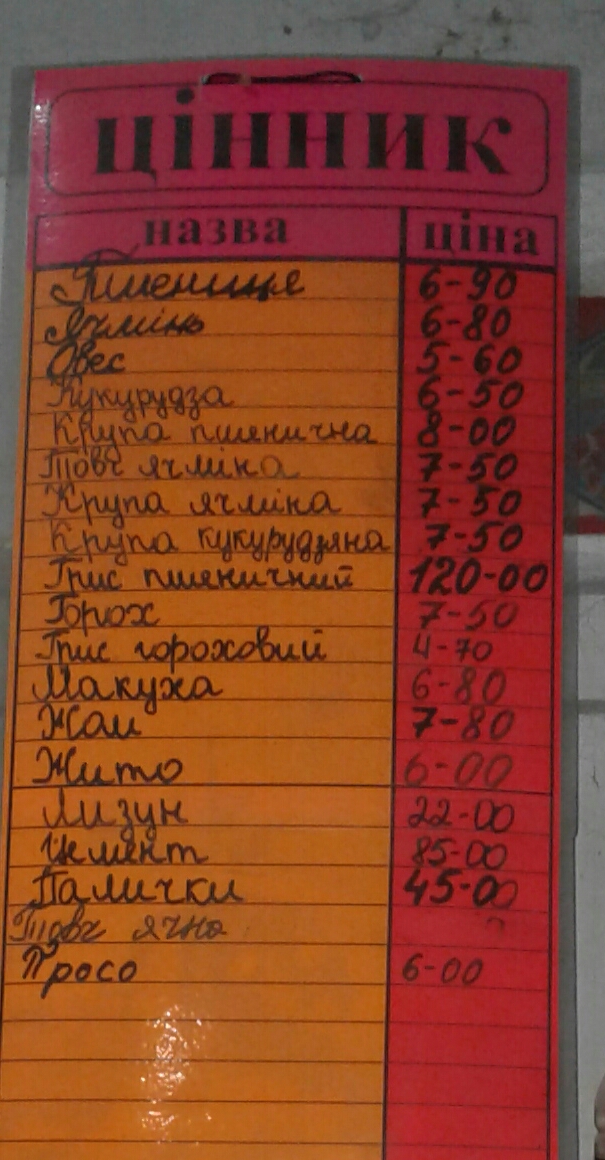 цінник
назва ціна
Пшениця 6-90
Ячмінь 6-80
Овес 5-60
Кукурудза 6-50
Крупа пшенична 8-00
Товч ячміна 7-50
Крупа ячміна 7-50
Крупа кукурудзяна 7-50
Грис пшеничний 120-00
Горох 7-50
Грис гороховий 4-70
Макуха 6-80
Жом 7-80
Жито 6-00
Лизун 22-00
Цемент 85-00
Палички 45-00
Товч ячна
Просо 6-00